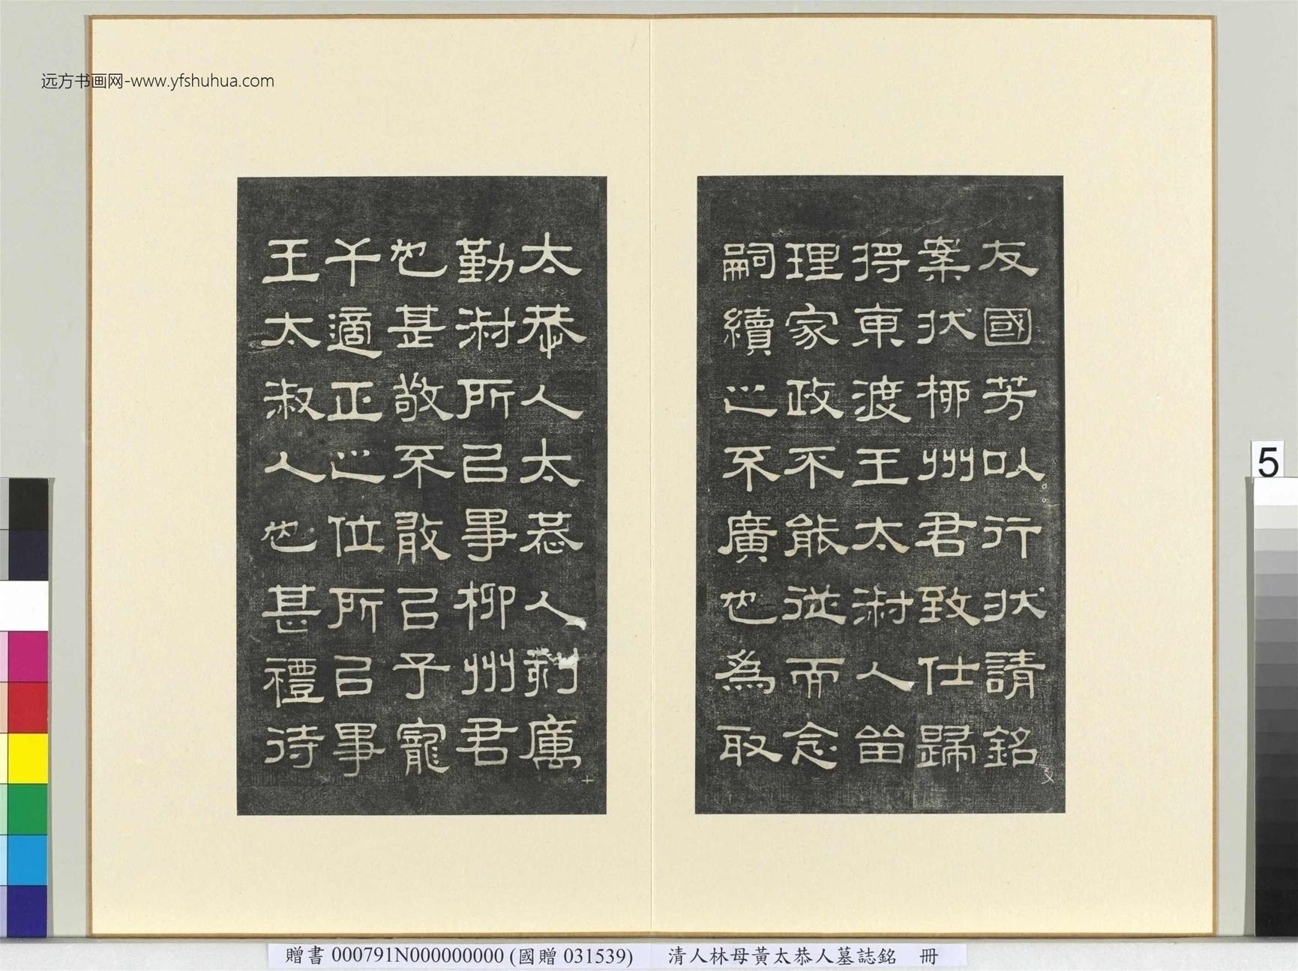 远方书画网-www.yfshuhua.com
友國芳以行狀請銘
案狀柳州君致仕歸
得東渡王太淑人畱
理家政不能從而念
嗣續之不廣也為取
太恭人太恭人刻厲
勤淑所㠯事柳州君
也甚敬不敢㠯子寵
干適正之位所㠯事
王太淑人也甚禮待
5
贈書 000791N000000000 (國贈 031539) 清人林母黃太恭人墓誌銘 冊